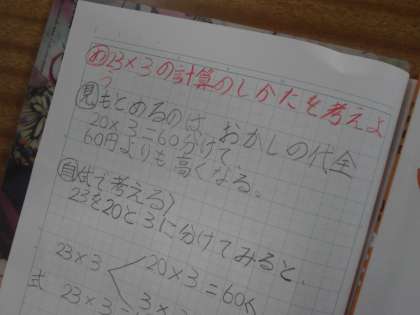 め 23×3の計算のしかたを考えよ
う
見 もとめるのは、おかしの代金
20×3=60分けて
60円よりも高くなる。
自 式で考える〉
23を20と3に分けてみると、
23×3 20×3=60
3×3
式 23×3=